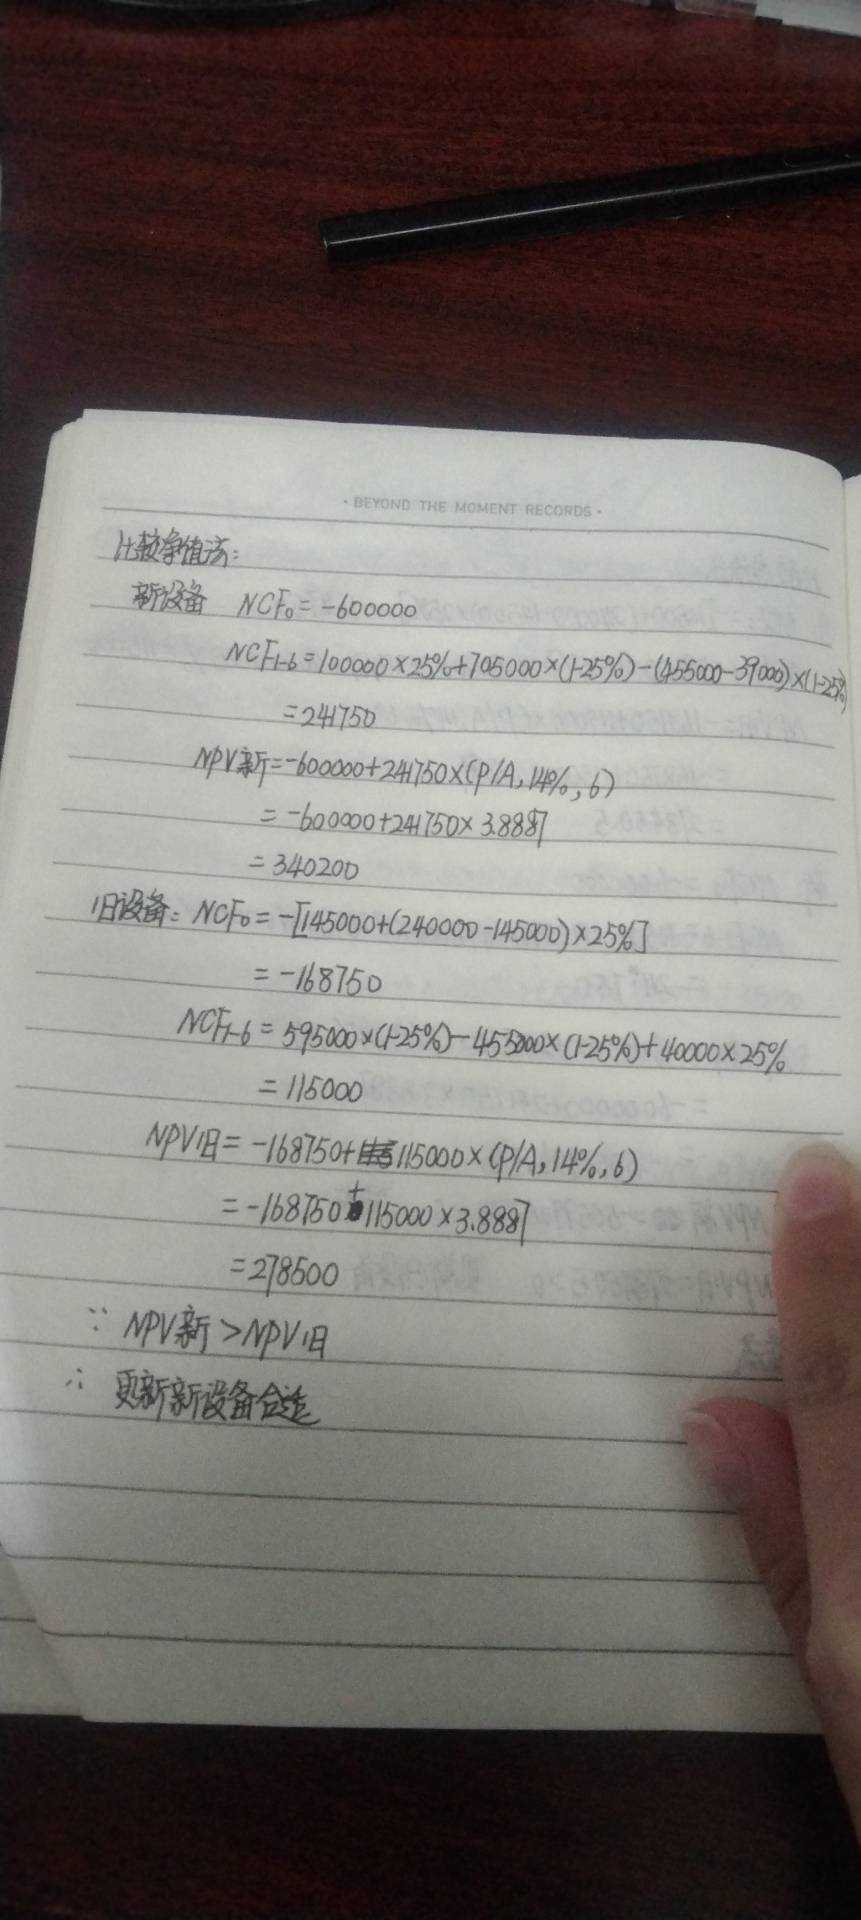 · BEYOND THE MOMENT RECORDS ·
比较净值法:
新设备 NCF₀=-600000
NCF₁₋₆=100000×25%+705000×(1-25%)-(455000-39000)×(1-25%)
=241750
NPV新=-600000+241750×(P/A,14%,6)
=-600000+241750×3.8887
=340200
旧设备: NCF₀=-[145000+(240000-145000)×25%]
=-168750
NCF₁₋₆=595000×(1-25%)-455000×(1-25%)+40000×25%
=115000
NPV旧=-168750+115000×(P/A,14%,6)
=-168750+115000×3.8887
=278500
∵ NPV新>NPV旧
∴ 更新新设备合适